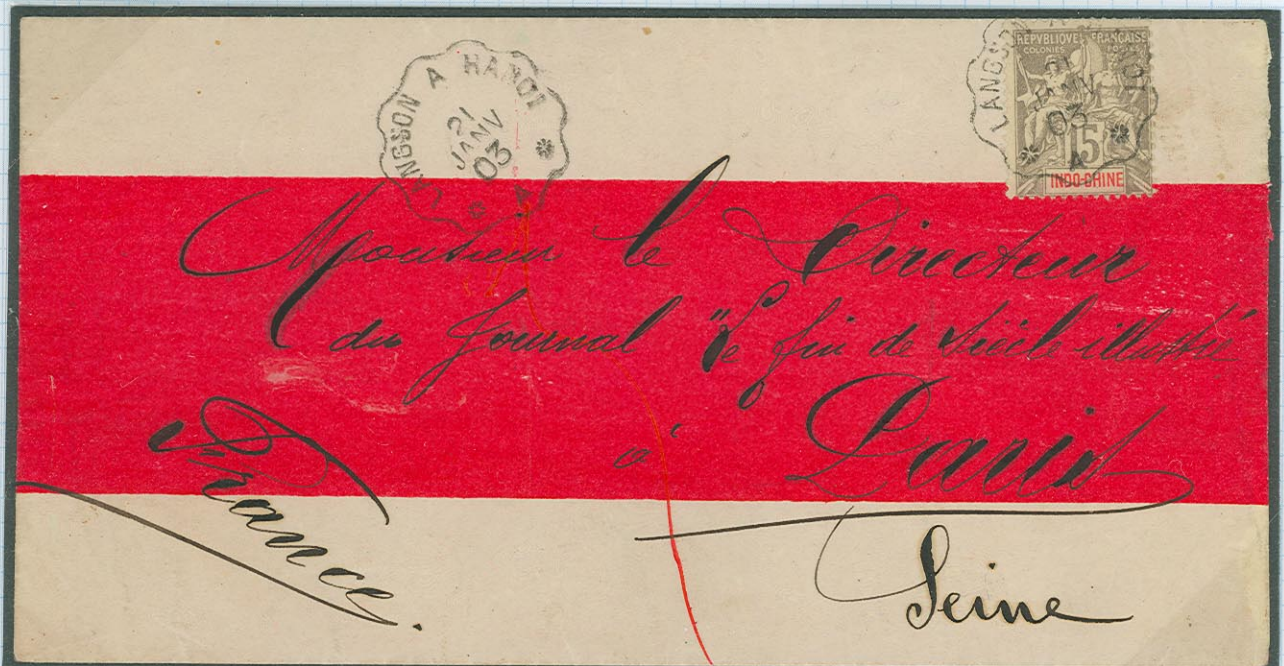 LANGSON A HANOI
21
JANV
03
LANGSON A
REPUBLIQUE FRANÇAISE
COLONIES POSTES
21
JANV
03
15
INDO-CHINE
Monsieur le Directeur
du Journal "Le fin de Siècle illustré"
à Paris
Seine
France.